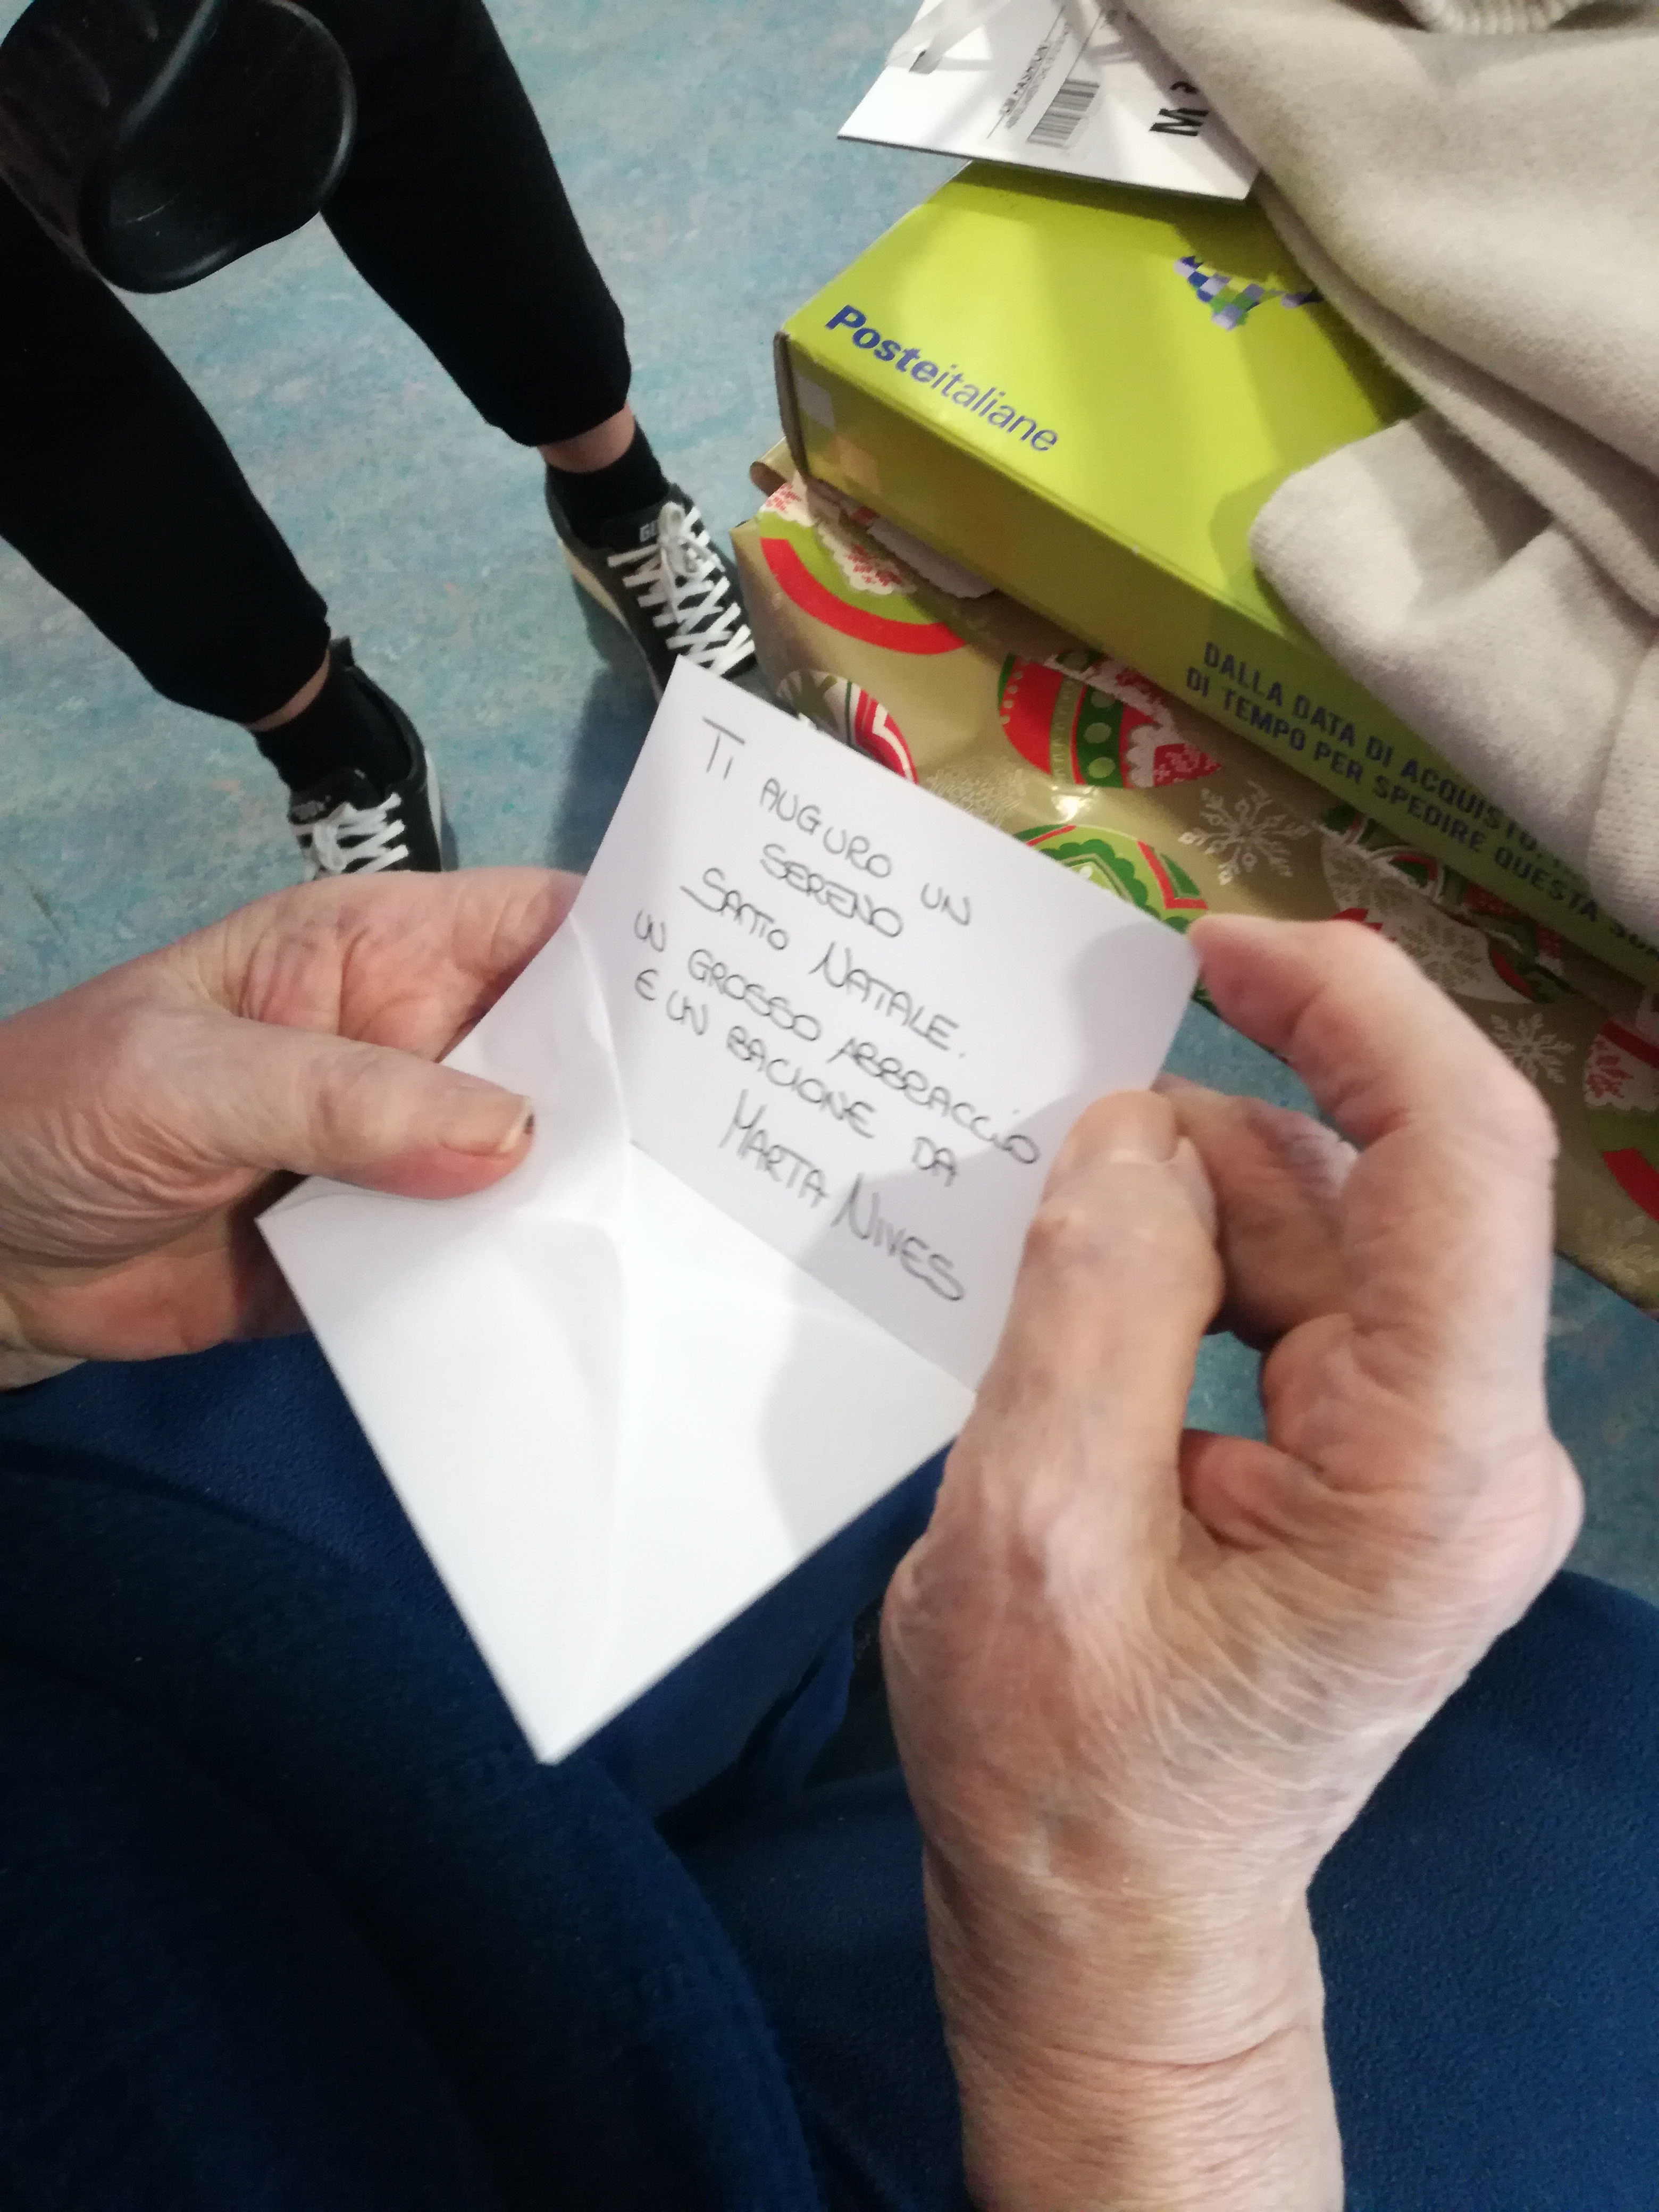 M
Posteitaliane
DALLA DATA DI ACQUISTO,
DI TEMPO PER SPEDIRE QUESTA
TI AUGURO UN
SERENO
SANTO NATALE.
UN GROSSO ABBRACCIO
E UN BACIONE DA
MARTA NIVES